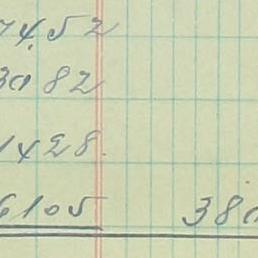 7452
3082
1428.
6105 380